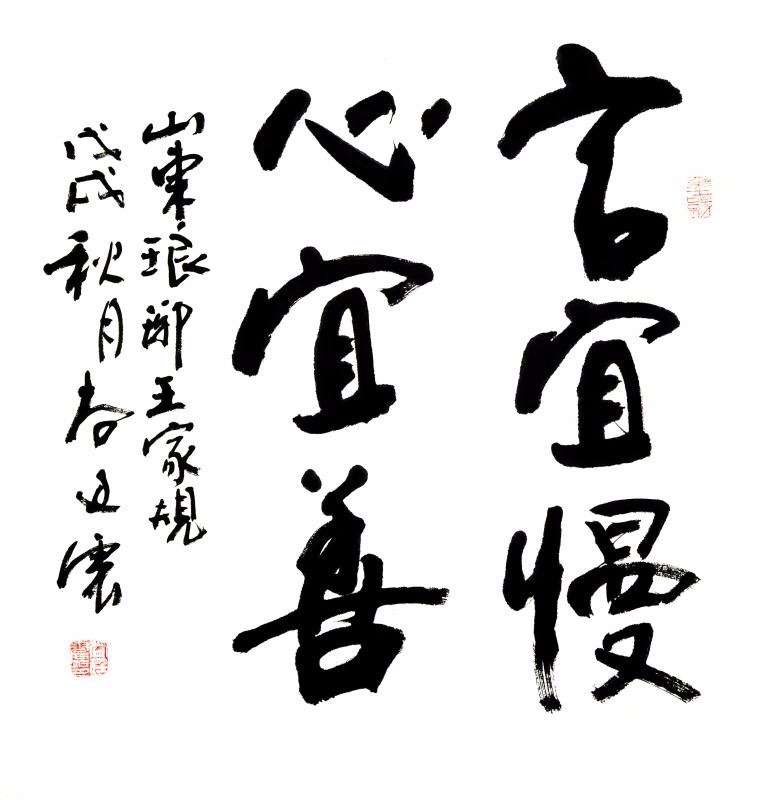 言宜慢
心宜善
山東琅琊王家規
戊戌秋月